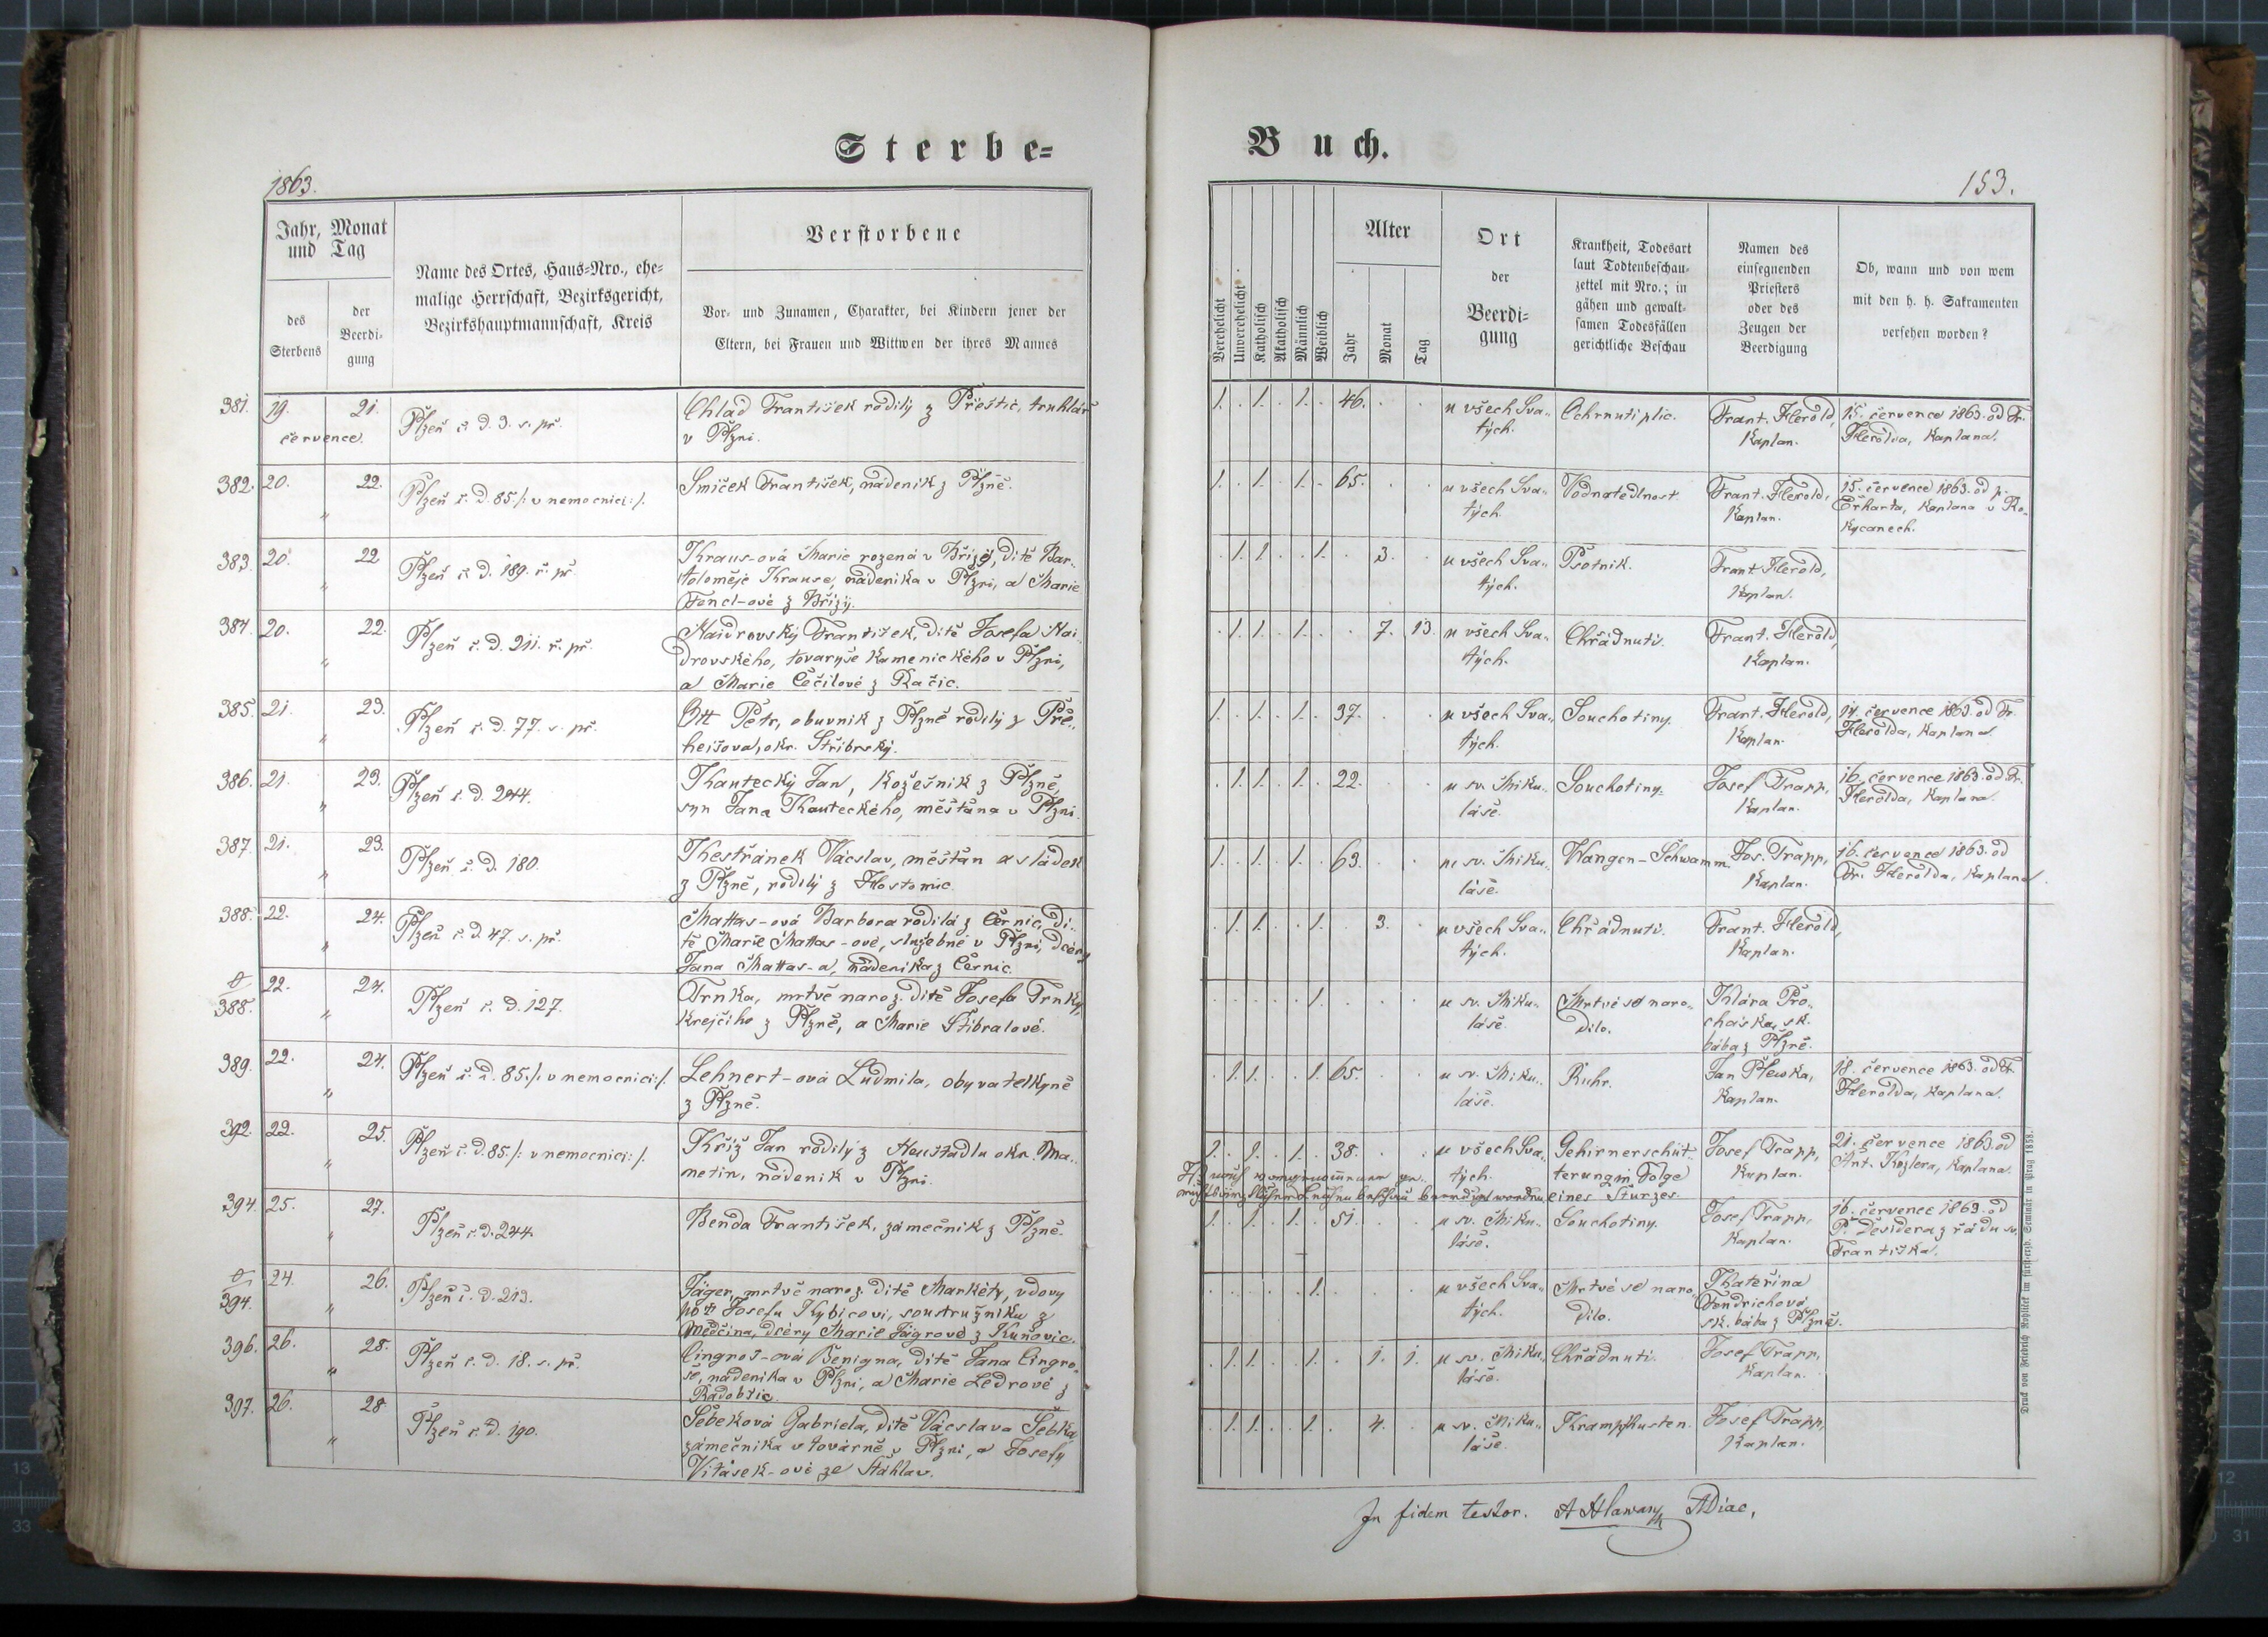 Sterbe-
1863.
Jahr, Monat
und Tag
des
Sterbens
der
Beerdi-
gung
Name des Ortes, Haus-Nro., ehe-
malige Herrschaft, Bezirksgericht,
Bezirkshauptmannschaft, Kreis
Verstorbene
Vor- und Zunamen, Charakter, bei Kindern jener der
Eltern, bei Frauen und Wittwen der ihres Mannes
381. 19. 21. Plzeň č. D. 3. s. př. Chlad František rodilý z Přeštic, truhlář
července. v Plzni.
382. 20. 22. Plzeň č. D. 85. /: v nemocnici :/. Smíček František, nádeník z Plzně.
"
383. 20. 22 Plzeň č. D. 189. ř. př. Kraus-ová Marie rozená v Bříze, dítě Bar-
" toloměje Krause, nádeníka v Plzni, a Marie
Fencl-ové z Břízy.
384. 20. 22. Plzeň č. D. 211. ř. př. Naidrovský František, dítě Josefa Nai-
" drovského, tovaryše kamenického v Plzni,
a Marie Cečilové z Račic.
385. 21. 23. Plzeň č. D. 77. s. př. Ott Petr, obuvník z Plzně rodilý z Pře-
" heišova, okr. Stříbrský.
386. 21. 23. Plzeň č. D. 244. Kautecký Jan, kožešník z Plzně,
" syn Jana Kauteckého, měšťana v Plzni.
387. 21. 23. Plzeň č. D. 180. Kestřánek Václav, měšťan a sládek
" z Plzně, rodilý z Hostomic.
388. 22. 24. Plzeň č. D. 47. s. př. Mattas-ová Barbora rodilá z Černic, dí-
" tě Marie Mattas-ové, služebné v Plzni, dcéry
Jana Mattas-a, nádeníka z Černic.
388. 22. 24. Plzeň č. D. 127. Trnka, mrtvě naroz. dítě Josefa Trnky,
" krejčího z Plzně, a Marie Stibralové.
389. 22. 24. Plzeň č. D. 85. /: v nemocnici :/. Lehnert-ová Ludmila, obyvatelkyně
" z Plzně.
392. 22. 25. Plzeň č. D. 85. /: v nemocnici :/. Kříž Jan rodilý z Neustadlu okr. Ma-
" netin, nádeník v Plzni.
394. 25. 27. Plzeň č. D. 244. Benda František, zámečník z Plzně.
"
394. 24. 26. Plzeň č. D. 213. Jäger, mrtvě naroz. dítě Markéty, vdovy
" po Josefu Kybicovi, soustružníku z
dcéry Marie Jägrové z Kuňovic.
396. 26. 28. Plzeň č. D. 18. s. př. Cingroš-ová Benigna, dítě Jana Cingro-
" še, nádeníka v Plzni, a Marie Ledrové z
Radobžic.
397. 26. 28 Plzeň č. D. 190. Šebeková Gabriela, dítě Václava Šebka,
" zámečníka v továrně v Plzni, a Josefy
Vitásek-ové ze Šťáhlav.
Buch.
153.
Verehelicht
Unverehelicht
Katholisch
Akatholisch
Männlich
Weiblich
Alter
Jahr
Monat
Tag
Ort
der
Beerdi-
gung
Krankheit, Todesart
laut Todtenbeschau-
zettel mit Nro.; in
gähen und gewalt-
samen Todesfällen
gerichtliche Beschau
Namen des
einsegnenden
Priesters
oder des
Zeugen der
Beerdigung
Ob, wann und von wem
mit den h. h. Sakramenten
versehen worden?
1. 1. 1. 46. u všech Sva- Ochrnutí plic. Frant. Herold, 15. července 1863. od Fr.
tých. Kaplan. Herolda, Kaplana.
1. 1. 1. 65. u všech Sva- Vodnatedlnost. Frant. Herold, 15. července 1863. od p.
tých. Kaplan. Erharta, Kaplana v Ro-
kycanech.
1. 1. 1. 3. u všech Sva- Psotník. Frant Herold,
tých. Kaplan.
1. 1. 1. 7. 13. u všech Sva- Chřádnutí. Frant. Herold,
tých. Kaplan.
1. 1. 1. 37. u všech Sva- Souchotiny. Frant. Herold, 14. července 1863. od Fr.
tých. Kaplan. Herolda, Kaplana.
1. 1. 1. 22. u sv. Miku- Souchotiny. Josef Trapp, 16. července 1863. od Fr.
láše. Kaplan. Herolda, Kaplana.
1. 1. 1. 63. u sv. Miku- Wangen-Schwamm. Jos. Trapp, 16. července 1863. od
láše. Kaplan. Fr. Herolda, Kaplana.
1. 1. 1. 3. u všech Sva- Chřádnutí. Frant. Herold,
tých. Kaplan.
1. u sv. Miku- Mrtvé se naro- Klára Pro-
láše. dilo. cháska, sk.
bába z Plzně.
1. 1. 1. 65. u sv. Miku- Ruhr. Jan Plewka, 18. července 1863. od Fr.
láše. Kaplan. Herolda, Kaplana.
1. 1. 1. 38. u všech Sva- Gehirnerschüt- Josef Trapp, 21. července 1863. od
tých. terung in Folge Kaplan. Ant. Kozlera, Kaplana.
eines Sturzes.
1. 1. 1. 51. u sv. Miku- Souchotiny. Josef Trapp, 16. července 1863. od
láše. Kaplan. P. Desidera z řádu sv.
Františka.
1. u všech Sva- Mrtvé se naro- Kateřina
tých. dilo. Fendrichová
sk. bába z Plzně.
1. 1. 1. 1. 1. u sv. Miku- Chřádnutí. Josef Trapp,
láše. Kaplan.
1. 1. 1. 4. u sv. Miku- Krampfhusten. Josef Trapp,
láše. Kaplan.
In fidem testor.
Druck von Friedrich Rohliček im fürsterzb. Seminär in Prag 1858.
13
33
12
31